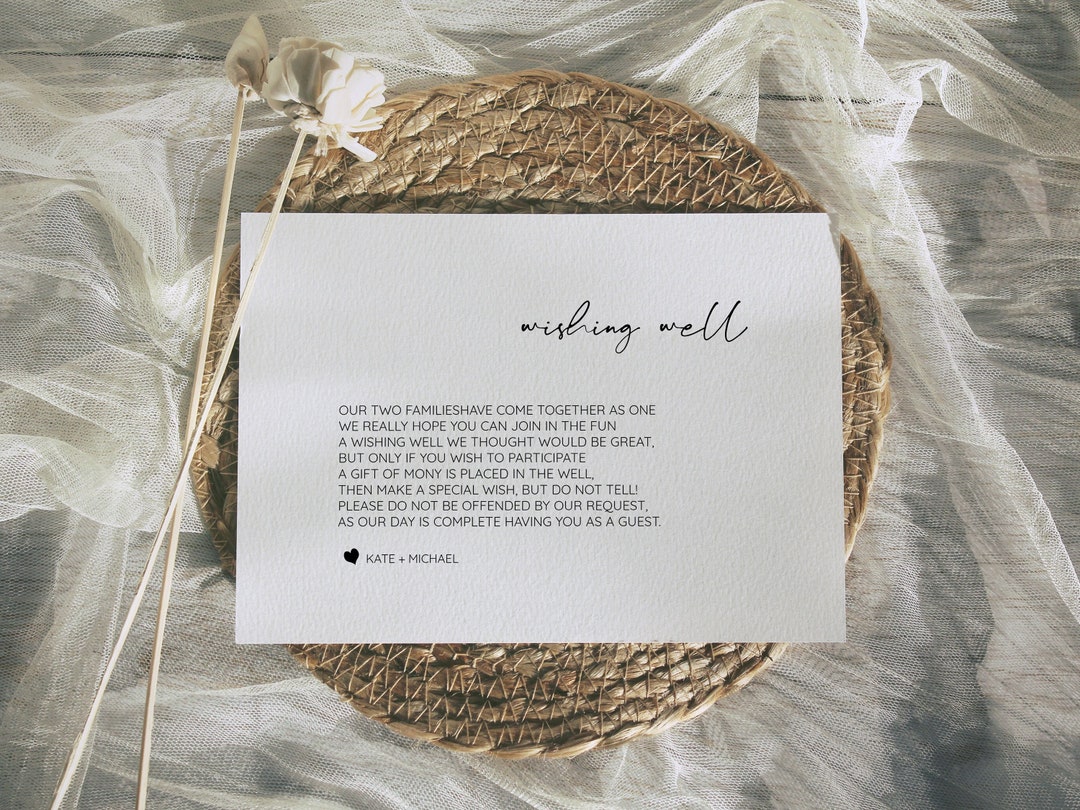 wishing well
OUR TWO FAMILIESHAVE COME TOGETHER AS ONE
WE REALLY HOPE YOU CAN JOIN IN THE FUN
A WISHING WELL WE THOUGHT WOULD BE GREAT,
BUT ONLY IF YOU WISH TO PARTICIPATE
A GIFT OF MONY IS PLACED IN THE WELL,
THEN MAKE A SPECIAL WISH, BUT DO NOT TELL!
PLEASE DO NOT BE OFFENDED BY OUR REQUEST,
AS OUR DAY IS COMPLETE HAVING YOU AS A GUEST.
KATE + MICHAEL